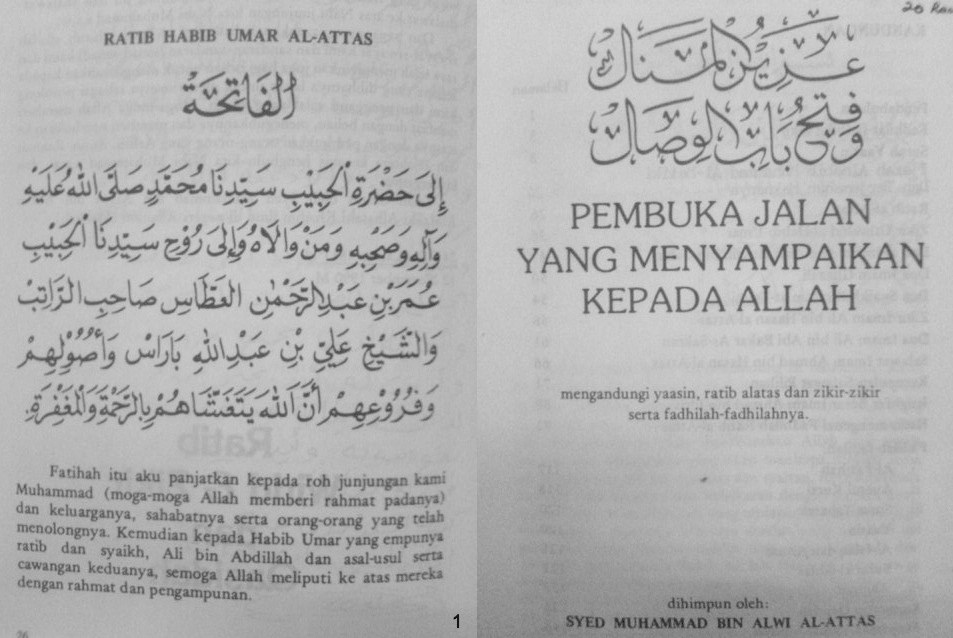 RATIB HABIB UMAR AL-ATTAS
الفَاتِحَةُ
إِلَى حَضْرَةِ الْحَبِيْبِ سَيِّدِنَا مُحَمَّدٍ صَلَّى اللهُ عَلَيْهِ
وَآلِهِ وَصَحْبِهِ وَمَنْ وَالَاهُ وَإِلَى رُوْحِ سَيِّدِنَا الْحَبِيْبِ
عُمَرَ بْنِ عَبْدِ الرَّحْمٰنِ العَطَّاسِ صَاحِبِ الرَّاتِبْ
وَالشَّيْخِ عَلِيِّ بْنِ عَبْدِ اللهِ بَارَاسْ وَأُصُوْلِهِمْ
وَفُرُوْعِهِمْ أَنَّ اللهَ يَتَغَشَّاهُمْ بِالرَّحْمَةِ وَالْمَغْفِرَةِ.
Fatihah itu aku panjatkan kepada roh junjungan kami
Muhammad (moga-moga Allah memberi rahmat padanya)
dan keluarganya, sahabatnya serta orang-orang yang telah
menolongnya. Kemudian kepada Habib Umar yang empunya
ratib dan syaikh, Ali bin Abdillah dan asal-usul serta
cawangan keduanya, semoga Allah meliputi ke atas mereka
dengan rahmat dan pengampunan.
26
1
20
عَزِيْزُ الْمَنَالْ
وَفَتْحُ بَابِ الْوِصَالْ
PEMBUKA JALAN
YANG MENYAMPAIKAN
KEPADA ALLAH
mengandungi yaasin, ratib alatas dan zikir-zikir
serta fadhilah-fadhilahnya.
dihimpun oleh:
SYED MUHAMMAD BIN ALWI AL-ATTAS